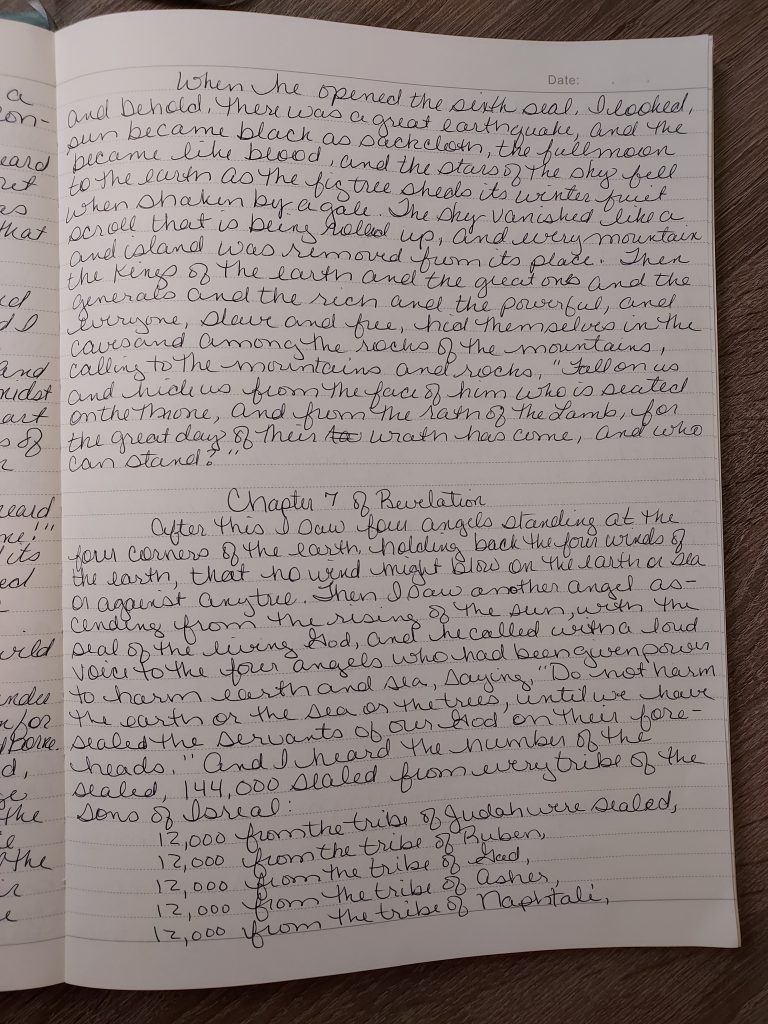 a
con-
eard
ret
as
that
ed
d I
and
midst
art
s of
r
eard
me!"
its
ed
rld
under
n for
d,
se
the
le
the
ir
e
Date:
When he opened the sixth seal, I looked,
and behold, there was a great earthquake, and the
sun became black as sackcloth, the full moon
became like blood, and the stars of the sky fell
to the earth as the fig tree sheds its winter fruit
when shaken by a gale. The sky vanished like a
scroll that is being rolled up, and every mountain
and island was removed from its place. Then
the Kings of the earth and the great ones and the
generals and the rich and the powerful, and
everyone, slave and free, hid themselves in the
caves and among the rocks of the mountains,
calling to the mountains and rocks, "Fall on us
and hide us from the face of him who is seated
on the throne, and from the rath of the Lamb, for
the great day of their wrath has come, and who
can stand?"
Chapter 7 of Revelation
After this I saw four angels standing at the
four corners of the earth, holding back the four winds of
the earth, that no wind might blow on the earth or sea
or against any tree. Then I saw another angel as-
cending from the rising of the sun, with the
seal of the living God, and he called with a loud
voice to the four angels who had been given power
to harm earth and sea, saying, "Do not harm
the earth or the sea or the trees, until we have
sealed the servants of our God on their fore-
heads." And I heard the number of the
sealed, 144,000 sealed from every tribe of the
sons of Isreal:
12,000 from the tribe of Judah were sealed,
12,000 from the tribe of Ruben,
12,000 from the tribe of Gad,
12,000 from the tribe of Asher,
12,000 from the tribe of Naphtali,